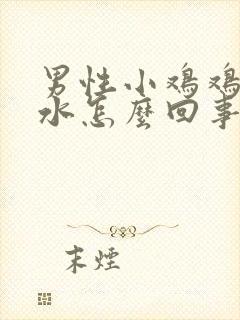 男性小鸡鸡
水怎麽回事
末煙